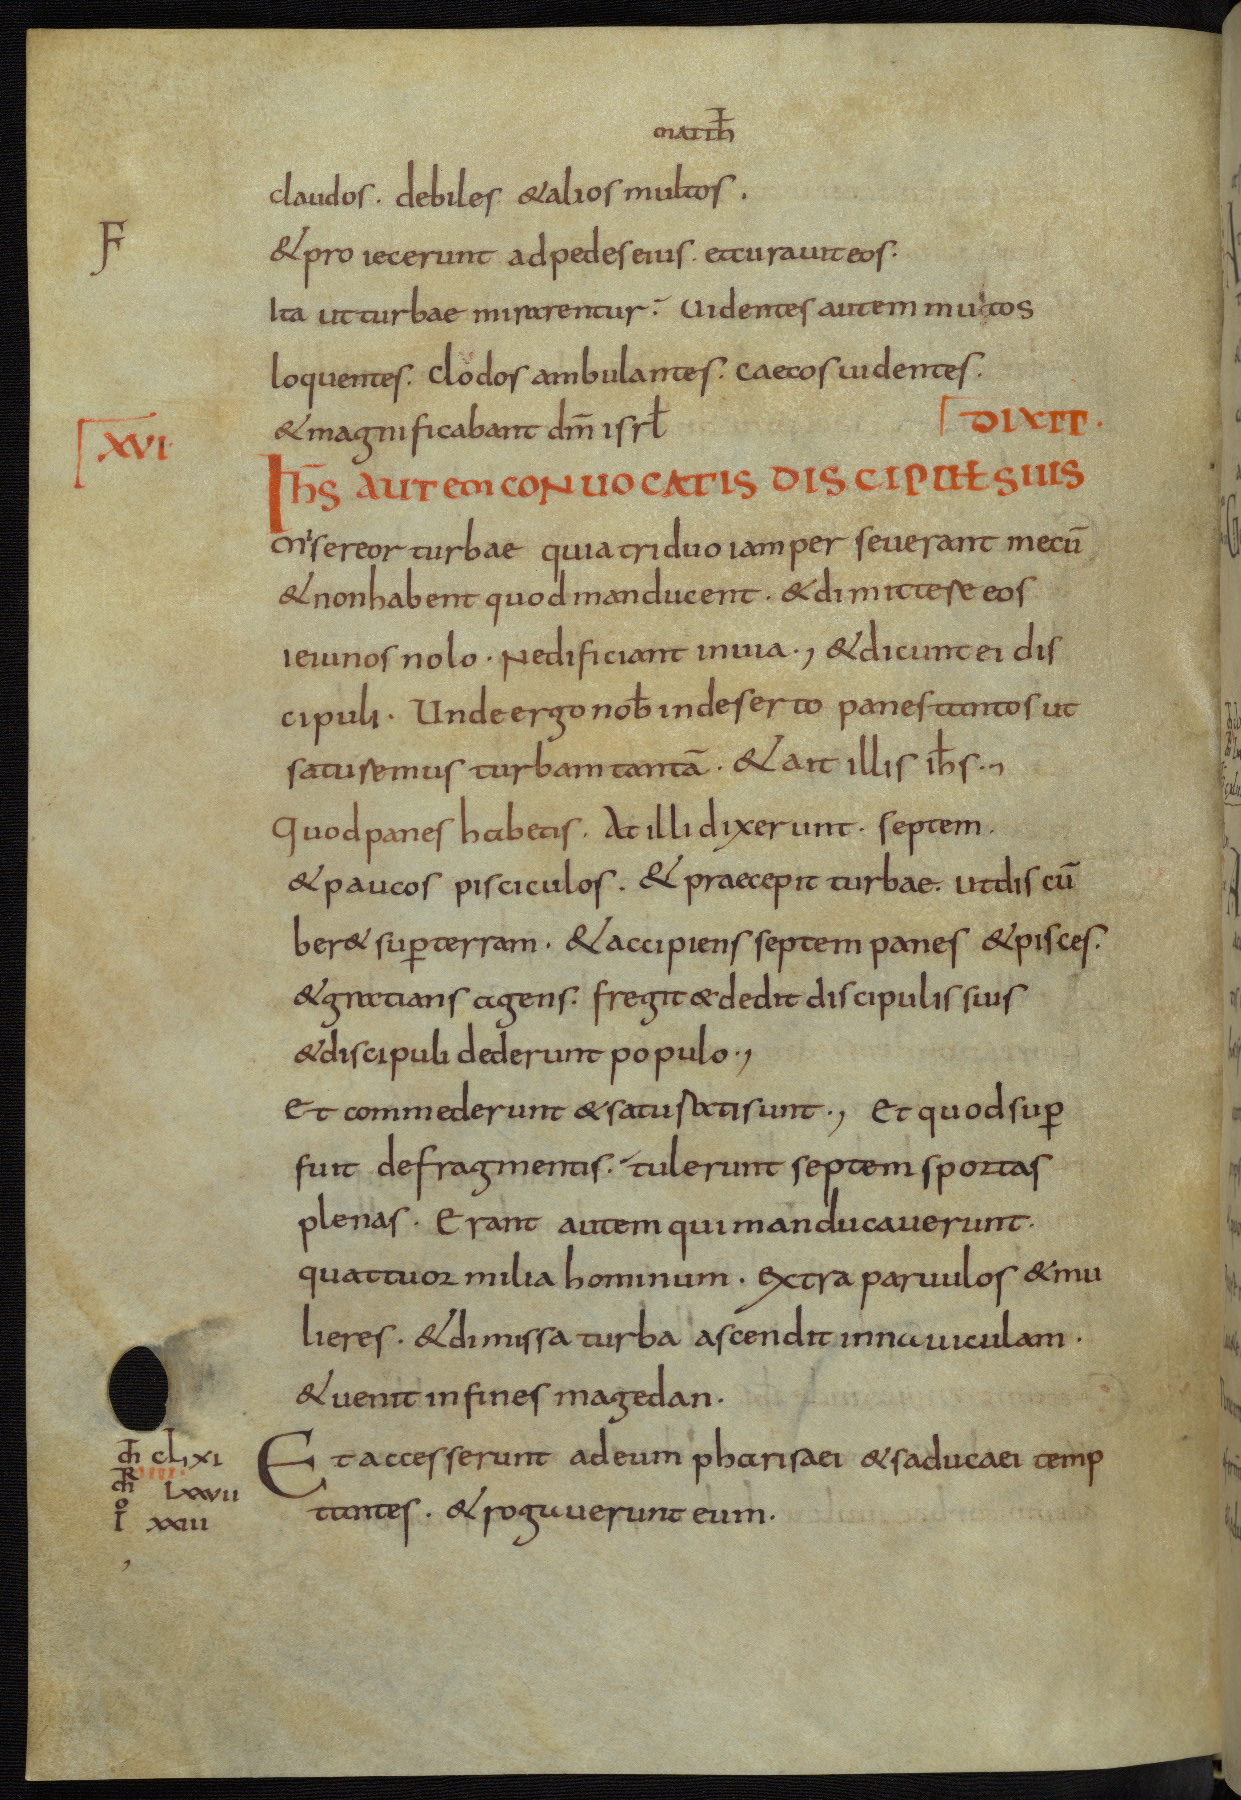 matth̄
claudos. debiles & alios multos.
F
& pro iecerunt ad pedes eius. et curauit eos.
Ita ut turbae mirarentur. Uidentes autem multos
loquentes. clodos ambulantes. caecos uidentes.
& magnificabant dm̄ isrł
DIXIT.
XVI
Ih̄s AUTEM CONUOCATIS DISCIPULIS SUIS
misereor turbae quia triduo iam per seuerant mecū
& non habent quod manducent. & dimittere eos
ieiunos nolo. Ne dificiant in uia., & dicunt ei dis
cipuli. Unde ergo nob̄ in deserto panes tantos ut
saturemus turbam tantā. & ait illis ih̄s.,
Quod panes habetis. At illi dixerunt. septem.
& paucos pisciculos. & praecepit turbae. ut discū
ber& sup̄ terram. & accipiens septem panes & pisces.
& gratians agens. fregit & dedit discipulis suis
& discipuli dederunt populo.,
Et commederunt & saturati sunt., Et quod sup̄
fuit de fragmentis. tulerunt septem sportas
plenas. Erant autem qui manducauerunt.
quattuor milia hominum. extra paruulos & mu
lieres. & dimissa turba ascendit in nauiculam.
& uenit in fines magedan.
clxi
Et accesserunt ad eum pharisaei & saducaei temp
lxxvii
tantes. & rogauerunt eum.
xxiii